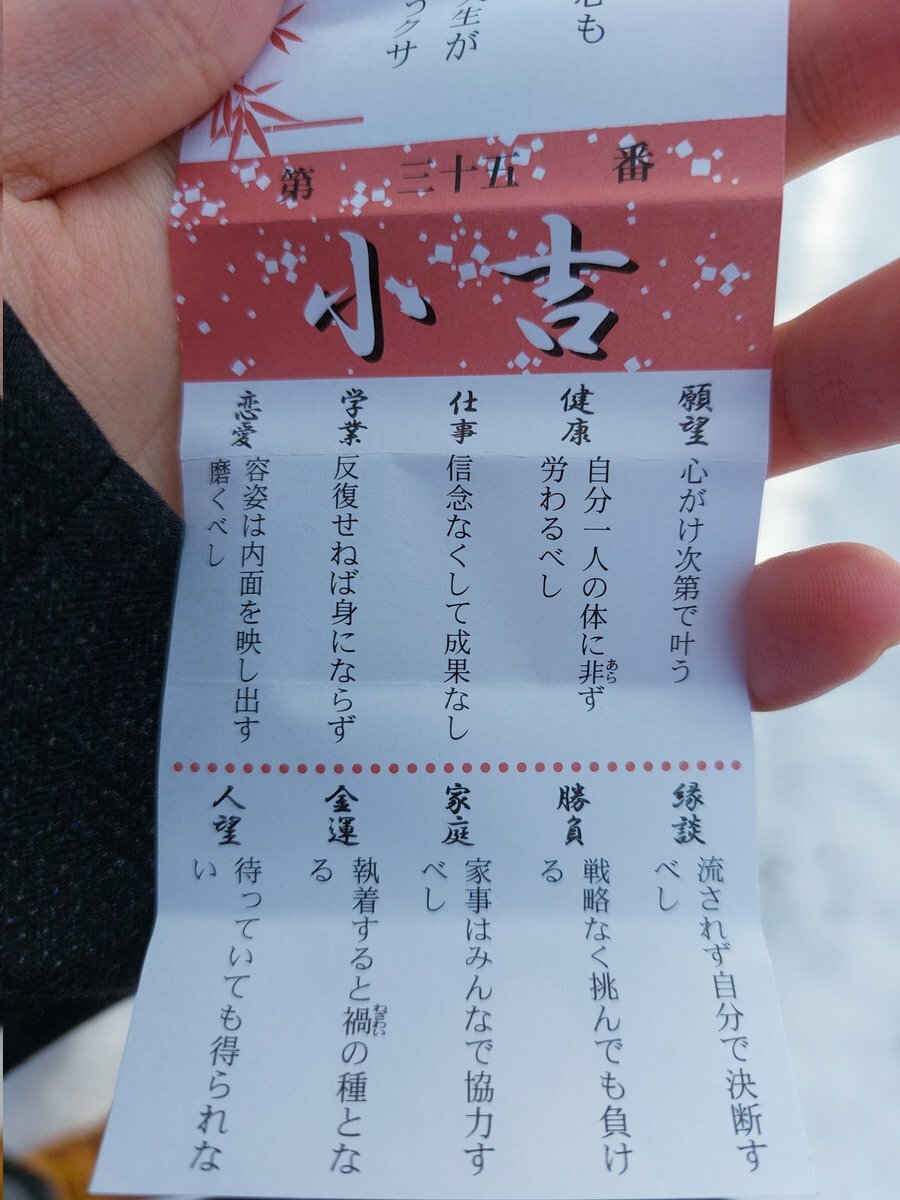 心も
先生が
っクサ
第 三十五 番
小吉
願望
心がけ次第で叶う
健康
自分一人の体に非ず
あら
労わるべし
仕事
信念なくして成果なし
学業
反復せねば身にならず
恋愛
容姿は内面を映し出す
磨くべし
縁談
流されず自分で決断す
べし
勝負
戦略なく挑んでも負け
る
家庭
家事はみんなで協力す
べし
金運
執着すると禍の種とな
わざわい
る
人望
待っていても得られな
い